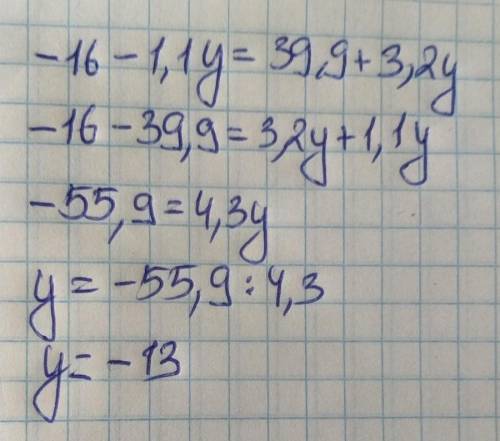 -16 - 1,1y = 39,9 + 3,2y
-16 - 39,9 = 3,2y + 1,1y
-55,9 = 4,3y
y = -55,9 : 4,3
y = -13